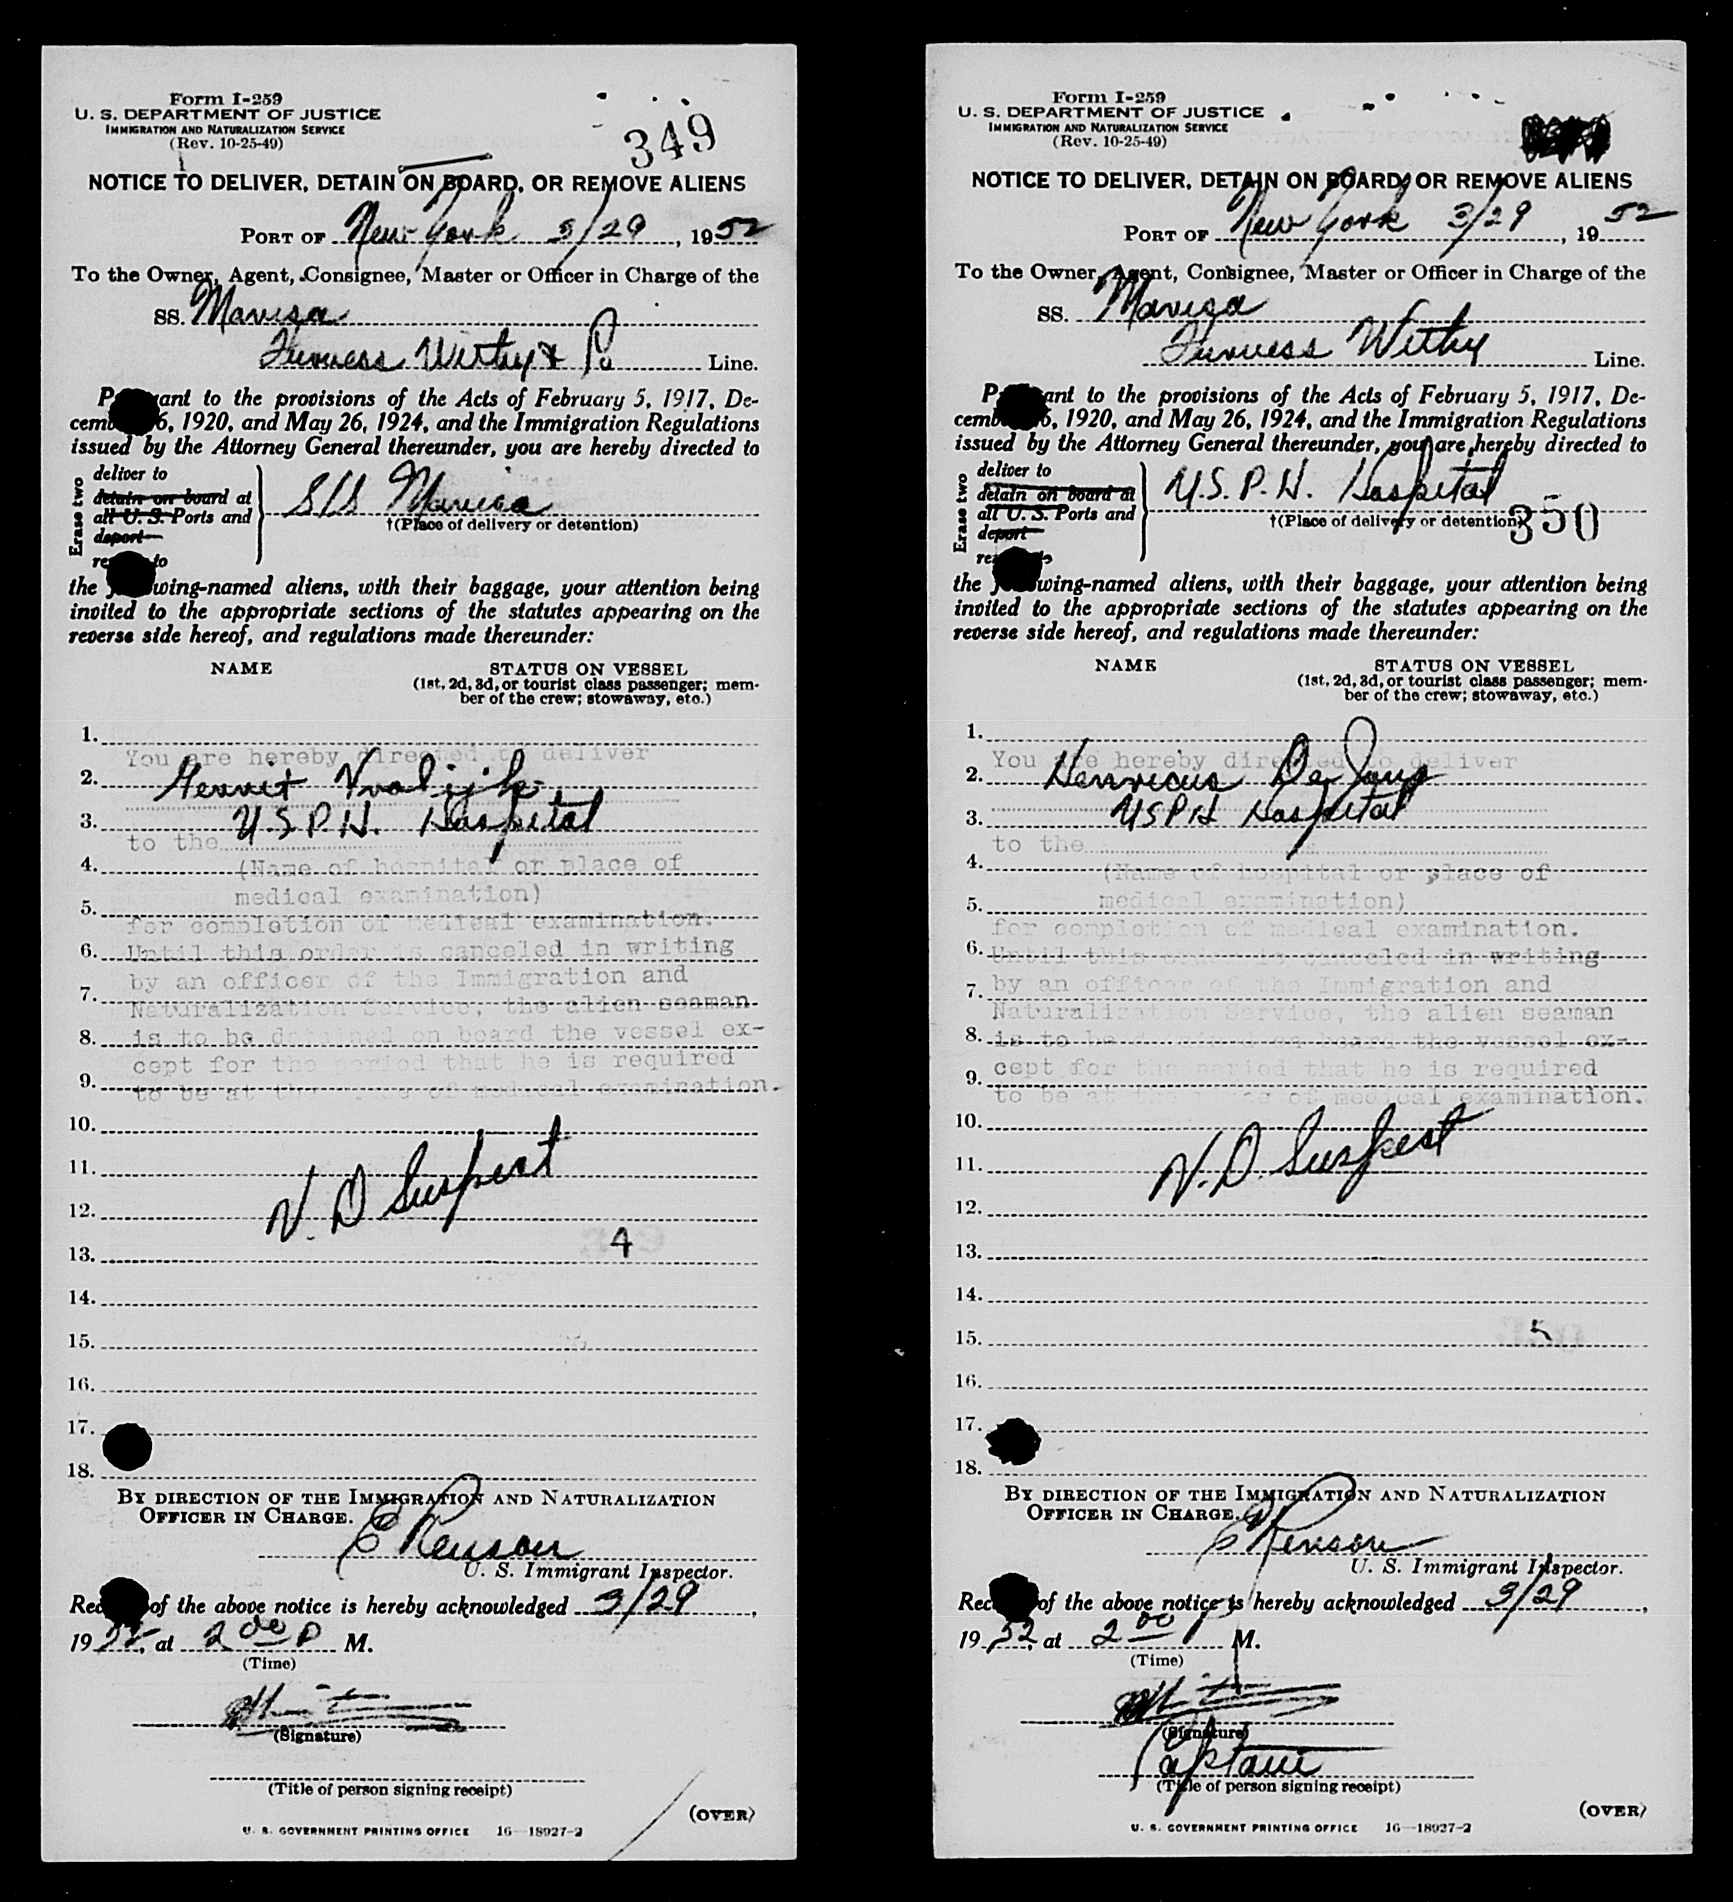 Form I-259
U. S. DEPARTMENT OF JUSTICE
IMMIGRATION AND NATURALIZATION SERVICE
(Rev. 10-25-49)
349
NOTICE TO DELIVER, DETAIN ON BOARD, OR REMOVE ALIENS
PORT OF New York 3/29, 1952
To the Owner, Agent, Consignee, Master or Officer in Charge of the
SS. Mavisa
Furness Withy & Co Line.
ant to the provisions of the Acts of February 5, 1917, De-
cemb 6, 1920, and May 26, 1924, and the Immigration Regulations
issued by the Attorney General thereunder, you are hereby directed to
Erase two
deliver to
detain on board at
all U. S. Ports and
deport
re to
S/S Mavisa
†(Place of delivery or detention)
the wing-named aliens, with their baggage, your attention being
invited to the appropriate sections of the statutes appearing on the
reverse side hereof, and regulations made thereunder:
NAME STATUS ON VESSEL
(1st, 2d, 3d, or tourist class passenger; mem-
ber of the crew; stowaway, etc.)
1.
You are hereby directed to deliver
2. Gerrit
3. U.S.P.H. Hospital
to the
4. (Name of hospital or place of
medical examination)
5.
for completion of medical examination.
6. Until this order is canceled in writing
by an officer of the Immigration and
7. Naturalization Service, the alien seaman
8. is to be detained on board the vessel ex-
cept for the period that he is required
9. to be at the place of medical examination.
10.
11.
V.D Suspect
12.
13. 4
14.
15.
16.
17.
18.
BY DIRECTION OF THE IMMIGRATION AND NATURALIZATION
OFFICER IN CHARGE.
E Renson
U. S. Immigrant Inspector.
Rec of the above notice is hereby acknowledged 3/29,
1952, at 2 00 P M.
(Time)
(Signature)
(Title of person signing receipt)
(OVER)
U. S. GOVERNMENT PRINTING OFFICE 16—18927-2
Form I-259
U. S. DEPARTMENT OF JUSTICE
IMMIGRATION AND NATURALIZATION SERVICE
(Rev. 10-25-49)
NOTICE TO DELIVER, DETAIN ON BOARD, OR REMOVE ALIENS
PORT OF New York 3/29, 1952
To the Owner, Agent, Consignee, Master or Officer in Charge of the
SS. Mavisa
Furness Withy Line.
ant to the provisions of the Acts of February 5, 1917, De-
cemb 6, 1920, and May 26, 1924, and the Immigration Regulations
issued by the Attorney General thereunder, you are hereby directed to
Erase two
deliver to
detain on board at
all U. S. Ports and
deport
U.S.P.H. Hospital
†(Place of delivery or detention)
350
the wing-named aliens, with their baggage, your attention being
invited to the appropriate sections of the statutes appearing on the
reverse side hereof, and regulations made thereunder:
NAME STATUS ON VESSEL
(1st, 2d, 3d, or tourist class passenger; mem-
ber of the crew; stowaway, etc.)
1.
You are hereby directed to deliver
2. Henricus De Jong
3. USPH Hospital
to the
4. (Name of hospital or place of
medical examination)
5.
for completion of medical examination.
6. Until this order is canceled in writing
7. by an officer of the Immigration and
Naturalization Service, the alien seaman
8. is to be detained on board the vessel ex-
cept for the period that he is required
9.
to be at the place of medical examination.
10.
11. V.D. Suspect
12.
13.
14.
15. 5
16.
17.
18.
BY DIRECTION OF THE IMMIGRATION AND NATURALIZATION
OFFICER IN CHARGE.
E Renson
U. S. Immigrant Inspector.
Rec of the above notice is hereby acknowledged 3/29,
1952, at 2 00 P M.
(Time)
(Signature)
Captain
(Title of person signing receipt)
(OVER)
U. S. GOVERNMENT PRINTING OFFICE 16—18927-2